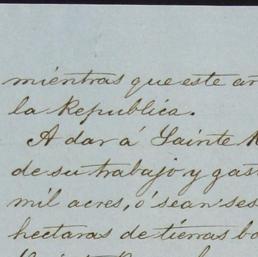 mientras que este
la Republica.
A dar á Sainte
de su trabajo y
mil acres, ó sean
hectaras de tierras